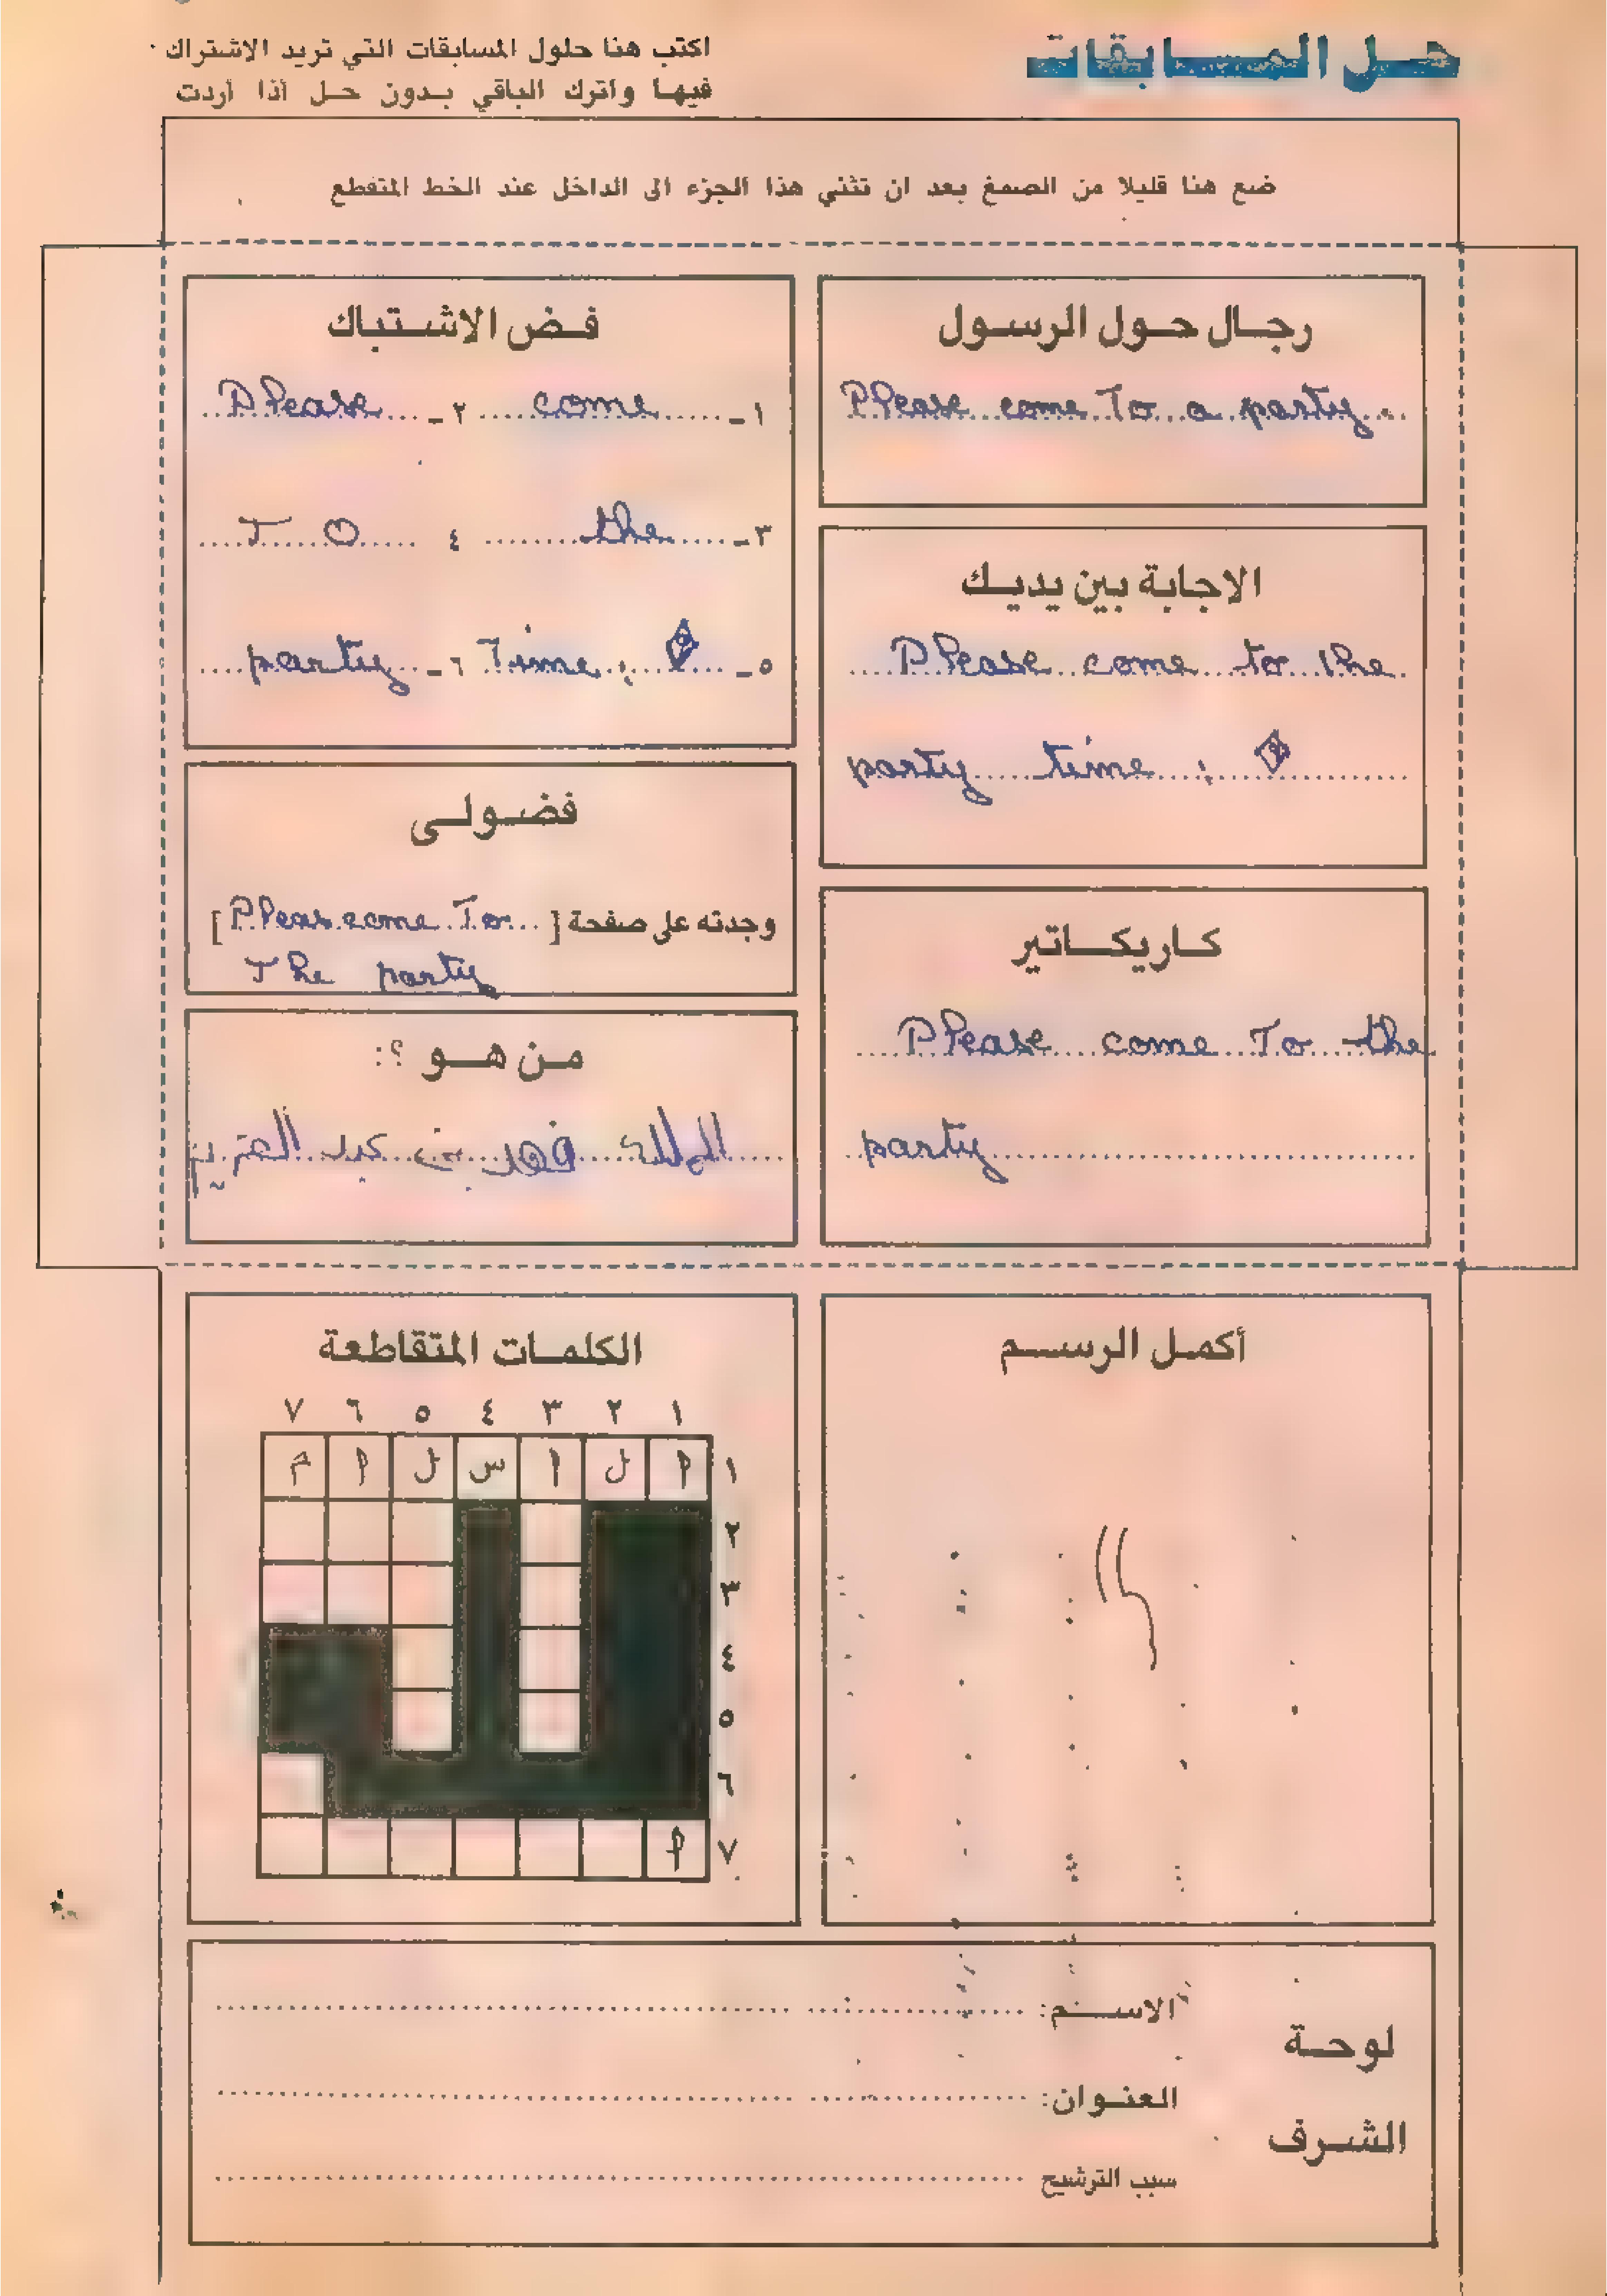 حل المسابقات
اكتب هنا حلول المسابقات التي تريد الاشتراك
فيها واترك الباقي بدون حل أذا أردت
ضع هنا قليلا من الصمغ بعد ان تثني هذا الجزء الى الداخل عند الخط المتقطع
رجال حول الرسول
Please come To a party
الاجابة بين يديك
Please come to the
party time :
كاريكاتير
Please come To the
party
فض الاشتباك
١- come ٢- Please
٣- the ٤ To
٥- Time : ٦- party
فضولى
وجدته على صفحة [Pleas come To]
The party
من هو ؟:
الملك فهد بن عبد العزيز
أكمل الرسم
الكلمات المتقاطعة
١ ٢ ٣ ٤ ٥ ٦ ٧
١ ا ل ا س ل ا م
٢
٣
٤
٥
٦
٧ ا
لوحة
الشرف
الاسم:
العنوان:
سبب الترشيح